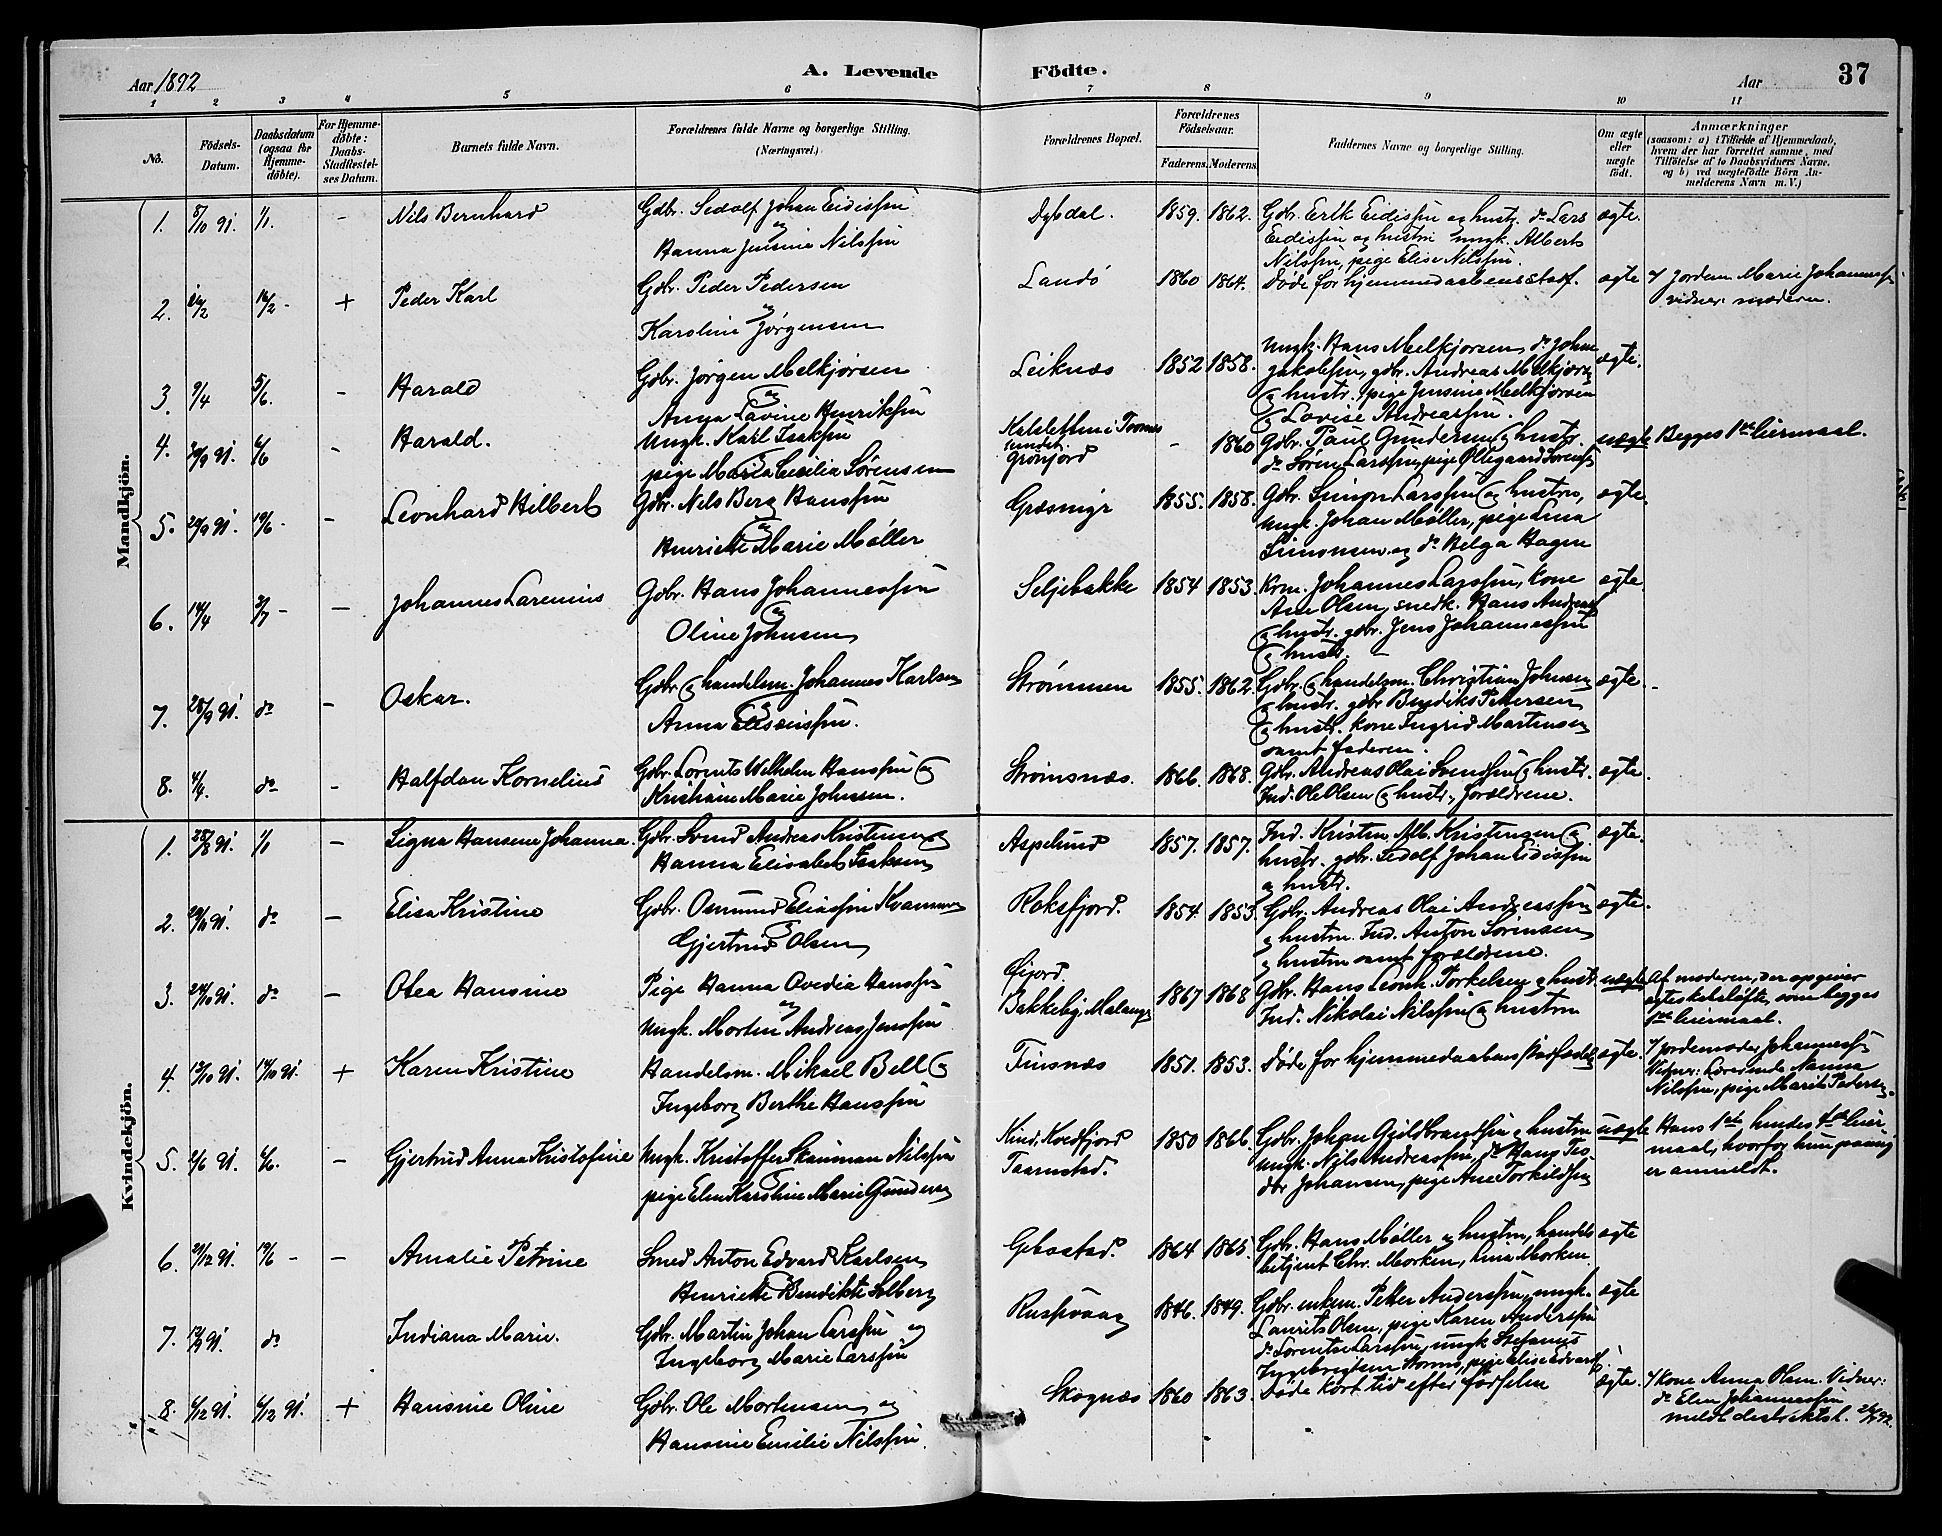 Aar 1892
A. Levende Födte.
Aar 37
1 2 3 4 5 6 7 8 9 10 11
No.
Födsels-Datum.
Daabsdatum (ogsaa for Hjemme-döbte).
For Hjemme-döbte: Daabs-Stadfæstel-ses Datum.
Barnets fulde Navn.
Forældrenes fulde Navne og borgerlige Stilling. (Næringsvei.)
Forældrenes Bopæl.
Forældrenes Födselsaar.
Faderens. Moderens.
Faddernes Navne og borgerlige Stilling.
Om ægte eller uægte födt.
Anmærkninger
(saasom: a) i Tilfælde af Hjemmedaab,
hvem der har forrettet samme, med
Tilföielse af to Daabsvidners Navne,
og b) ved uægtefödte Börn An-
melderens Navn m. V.)
Mandkjön.
1. 8/10 91. 1/1. - Nils Bernhard
Gdbr. Sedolf Johan Eidissen
og
Hanna Jensine Nilssen
Dybdal. 1859. 1862.
Gdbr. Erik Eidissen og hustr. do Lars
Eidissen og hustru ungk. Albert
Nilssen, pige Elise Nilssen.
ægte.
2. 16/2 - + Peder Karl
Gdbr. Peder Pedersen
og
Karoline Jørgensen
Landø 1860 1864. Døde før hjemmedaabens stadf. ægte
af Jordem. Marie Johanness.
vidner: moderen.
3. 9/4 5/6. - Harald
Gdbr. Jørgen Melkjorsen
og
Anna Lavine Henriksen
Leiknæs 1852 1858.
Ungk. Hans Melkjorsen, do Johan
Jakobsen, gdbr. Andreas Melkjorsen
og hustr. pige Jensine Melkjorsen
og Lovise Andreassen.
ægte.
4. 30/9 91. 6/6 - Harald.
Ungk. Karl Isaksen
og
pige Maria Cecilia Sørensen
Kalsletten i Tromsø
sundet
Grønfjord
- 1860
Gdbr. Paul Gundersen og hustr.
do Søren Larssen, pige Ollegaard Sørens.
uægte Begges 1ste leiermaal.
5. 29/9 91. 19/6 - - Leonhard Hilbert
Gdbr. Nels Berg Hanssen
og
Henriette Marie Møller
Græsmyr 1855. 1858.
Gdbr. Simon Larssen og hustru,
ungk. Johan Møller, pige Lina
Simonsen og do Helga Hagen
ægte.
6. 14/4 3/7 - - Johannes Larenius
Gdbr. Hans Johannessen
og
Oline Johnsen
Seljebakke 1854 1853.
Kom. Johannes Larssen, kone
Ane Olsen, snedk. Hans Andreas
og hustr. gdbr. Jens Johannessen
og hustr.
ægte
7. 28/9 91. do - Oskar.
Gdbr. og handelsm. Johannes Karlsen
og
Anna Eliseussen.
Strømmen 1855. 1862.
Gdbr. og handelsm. Christian Johnsen
og hustr. gdbr Bendiks Pettersen
og hustr. kone Ingrid Martinsen
samt faderen.
ægte.
8. 4/4. do - Halfdan Kornelius
Gdbr. Lorents Wilhelm Hanssen og
Kristiane Marie Johnsen.
Strømsnæs. 1866. 1868.
Gdbr. Andreas Olai Svendsen og hustr.
Ind. Ole Olsen og hustr., forældrene.
ægte.
Kvindekjön.
1. 28/8 91. 1/1 - Signa Hansene Johanna.
Gdbr. Svend Andreas Kristensen og
Hanna Elisabet Isaksen
Aspelund 1857. 1857.
Ind. Kristen Alb. Kristensen og
hustr. gdbr. Sedolf Johan Eidissen
og hustr.
ægte.
2. 29/10 91. do - Elisa Kristine
Gdbr. Osmund Eliassen Kvamme
og
Gjertrud Olsen
Roksfjord. 1854. 1853.
Gdbr. Andreas Olai Andreassen
og hustru. Ind. Anton Sørensen
og hustru samt forældrene.
ægte.
3. 24/10 91. do - Olea Hansine
Pige Hanna Ovedia Hanssen
og
Ungk. Morten Andreas Jenssen
Øijord.
Bakkeby, Malangen
1867 1868
Gdbr. Hans Leonh. Torkelsen og hustr.
Ind. Nikolai Nilssen og hustru
uægte
Af moderen, der opgiver
ægteskabsløfte, som begges
1ste leiermaal.
4. 13/10 91. 14/10 91. + Karen Kristine
Handelsm. Mikael Bell og
Ingeborg Berthe Hanssen
Finsnæs 1851. 1853. Døde før hjemmedaabens stadfæstelse ægte.
af jordemoder Johanness.
Vidner: Lærerinde Nanna
Nilssen, pige Marit Pedersen.
5. 2/6 91. 6/6. - Gjertrud Anna Kristofine
Ungk. Kristoffer Skaiman Nilssen
og
pige Elen Karoline Marie Gundersen
Kind, Kvedfjord
Taarnstad.
1850 1866.
Gdbr. Johan Gjildbrandsen og hustru
ungk. Nils Andreassen, do Hans Teo-
dor Johansen, pige Ane Torkildsen
uægte
Hans 1ste hendes 1ste leier-
maal, hvorfor hun paany
er anmeldt.
6. 21/12 91. 19/6 - - Amalie Petrine
Smed Anton Edvard Karlsen
og
Henriette Bendikte Solberg
Gibostad. 1864 1865.
Gdbr. Hans Møller og hustru, handels
betjent Chr. Morken, Lina Morken.
ægte
7. 12/9 91. do Indiana Marie.
Gdbr. Martin Johan Larssen og
Ingeborg Marie Larssen
Russevaag 1846. 1849.
Gdbr. enkem. Petter Anderssen, ungk.
Laurits Olsen, pige Karen Anderssen
do Lorentse Larssen, ungk Stefanus
Ingebrigtsen Storms, pige Elise Edvards.
ægte
8. 6/12 91. 6/12 91. + Hansine Oline
Gdbr. Ole Mortensen og
Hansine Emilie Nilssen.
Skognæs 1860 1863. Døde kort tid efter fødselen ægte.
af kone Anna Olsen. Vidner:
do Elen Johannessen
meldt distriktsl.